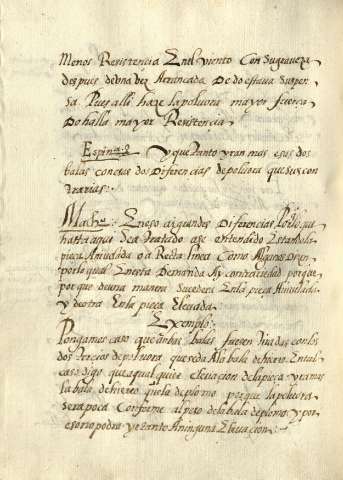 menos Resistencia En el viento Con su graveza
despues de una vez Arrincada De do estava suspen
sa. Pues alli haze la polvora mayor fuerça
Do halla mayor Resistencia
Espina: Y que tanto yran mas esas dos
balas con esas dos Diferencias de polvora que sus con
trarias:
Mach: En eso ai grandes Diferencias Porque
hasta aqui Se a tratado a se entendido Estando la
pieça Anivelada o a Recta linea Como Algunos Dizen
por lo qual En esta Demanda Ay contrariedad porque
por que de una manera Sucedera En la pieça Anivelada
y de otra En la pieça Elevada.
Exemplo:
Pongamos caso que ambas balas fuesen tiradas con los
dos tercios de polvora que se da A la bala de hierro. En tal
caso digo que a qualquier Elevacion de la pieça yra mas
la bala de hierro que la de plomo porque la polvora
sera poca Conforme al peso de la bala de plomo y por
eso no podra yr tanto A ninguna Elevacion: